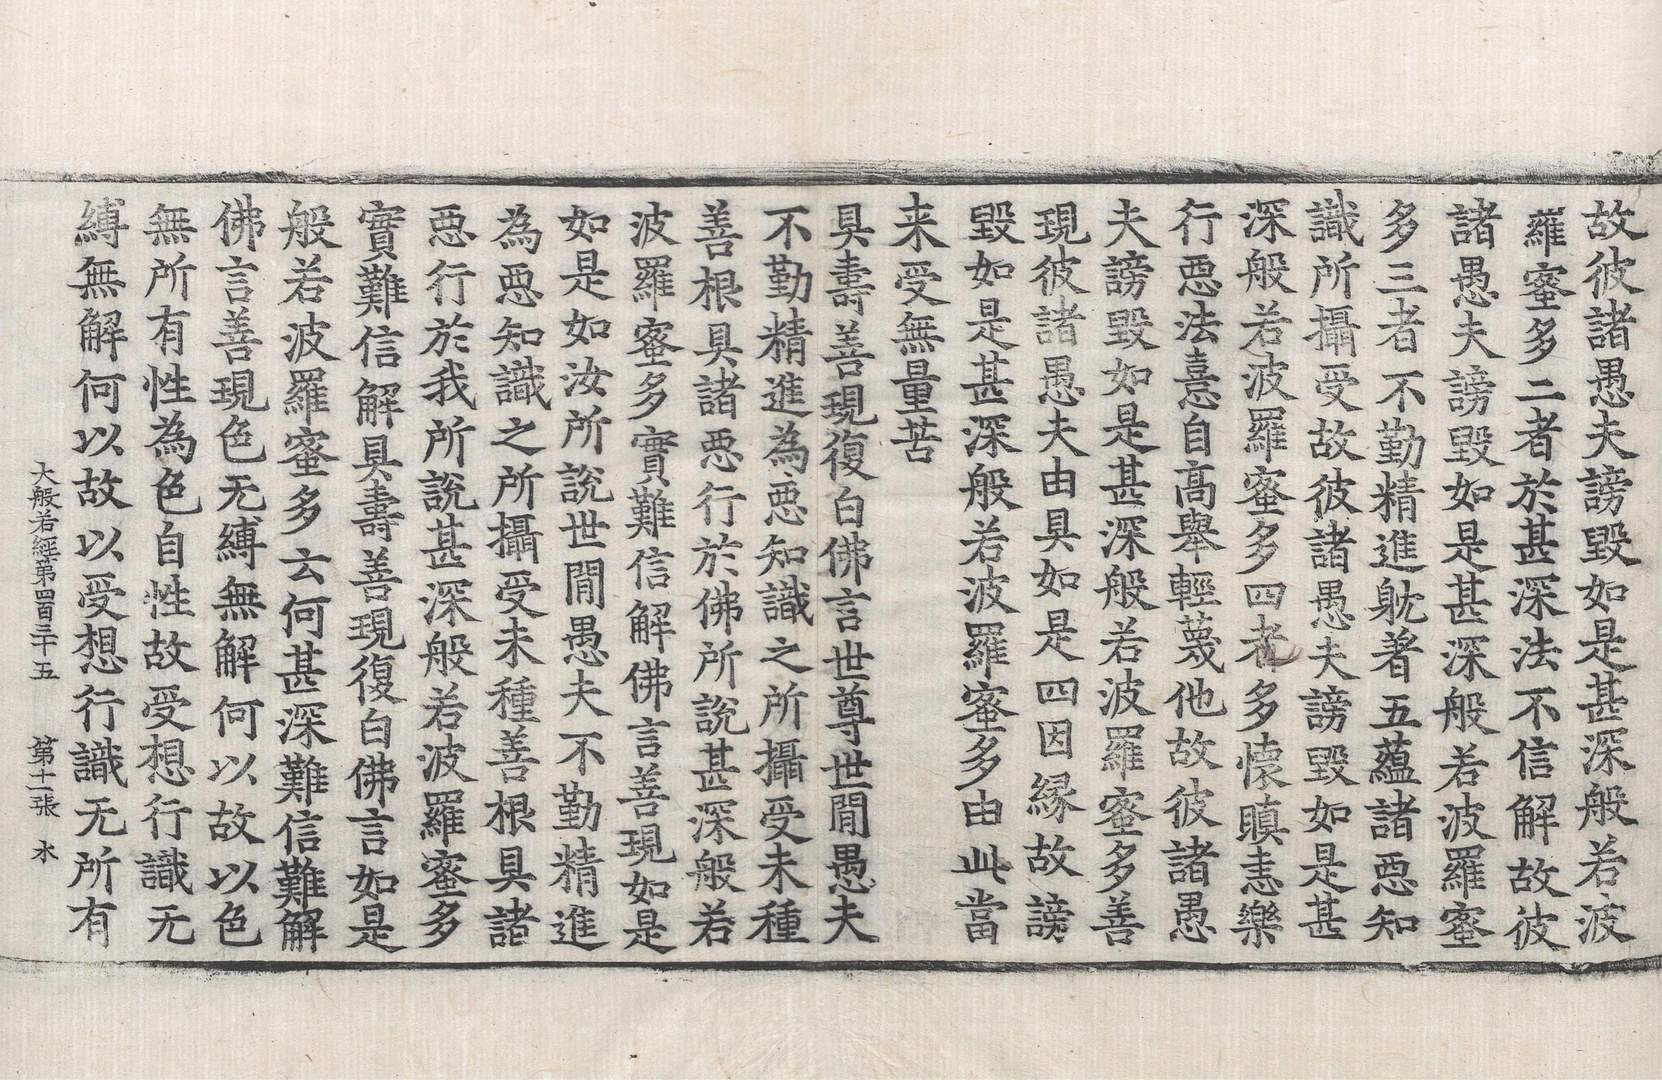 故彼諸愚夫謗毀如是甚深般若波
羅蜜多二者於甚深法不信解故彼
諸愚夫謗毀如是甚深般若波羅蜜
多三者不勤精進躭著五蘊諸惡知
識所攝受故彼諸愚夫謗毀如是甚
深般若波羅蜜多四者多懷瞋恚樂
行惡法憙自高舉輕蔑他故彼諸愚
夫謗毀如是甚深般若波羅蜜多善
現彼諸愚夫由具如是四因緣故謗
毀如是甚深般若波羅蜜多由此當
来受無量苦
具壽善現復白佛言世尊世間愚夫
不勤精進為惡知識之所攝受未種
善根具諸惡行於佛所說甚深般若
波羅蜜多實難信解佛言善現如是
如是如汝所說世間愚夫不勤精進
為惡知識之所攝受未種善根具諸
惡行於我所說甚深般若波羅蜜多
實難信解具壽善現復白佛言如是
般若波羅蜜多云何甚深難信難解
佛言善現色无縛無解何以故以色
無所有性為色自性故受想行識无
縛無解何以故以受想行識无所有
大般若經第四百三十五 第十二張 水